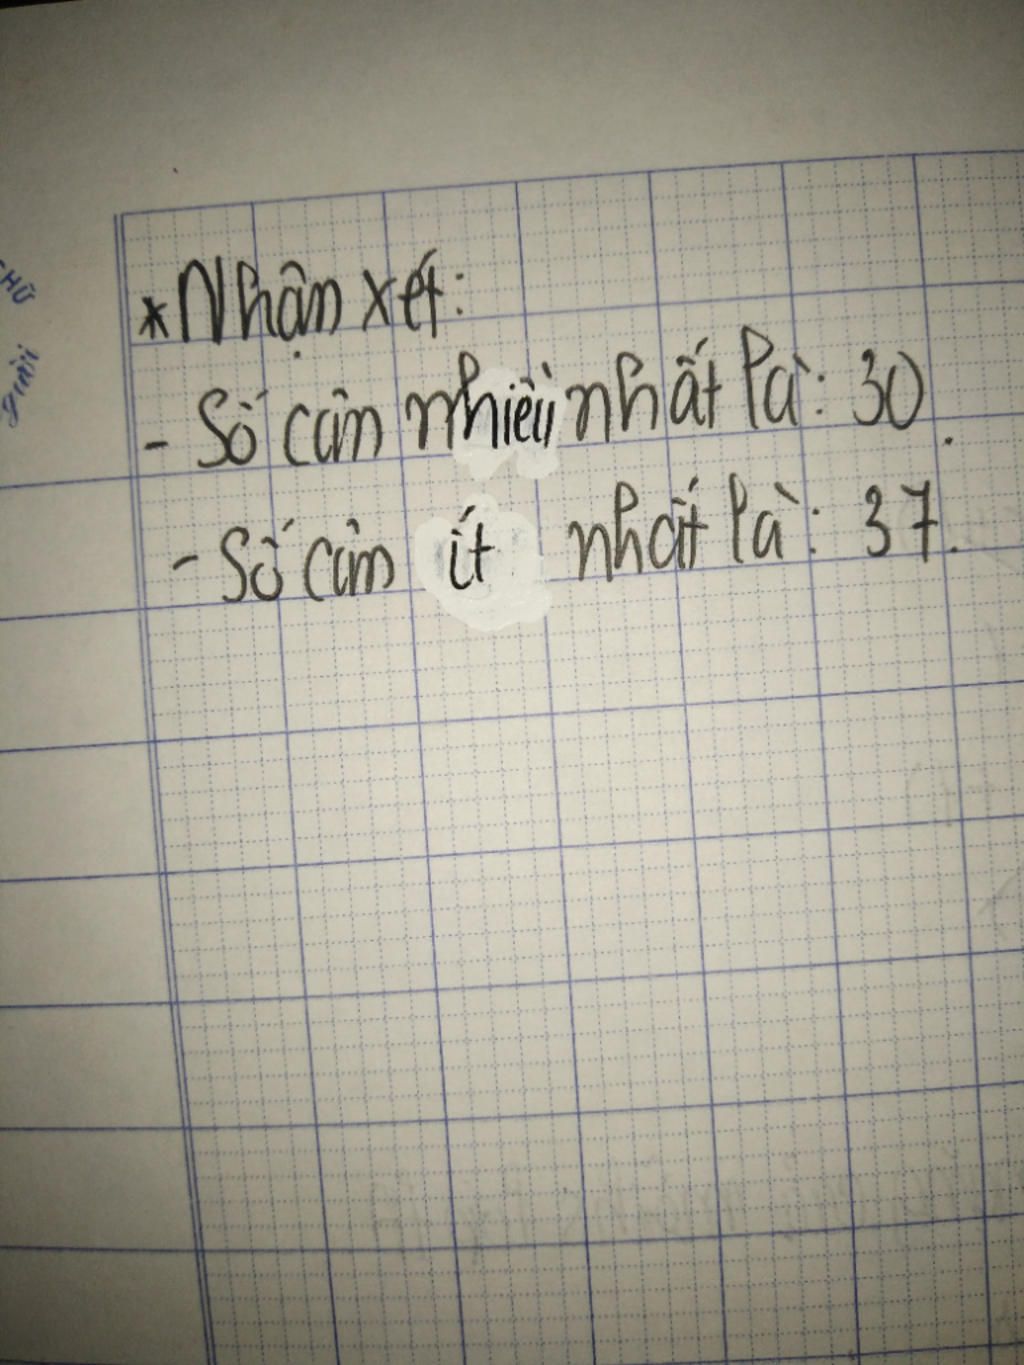 * Nhận xét:
- Số cân nhiều nhất là: 30.
- Số cân ít nhất là: 37.